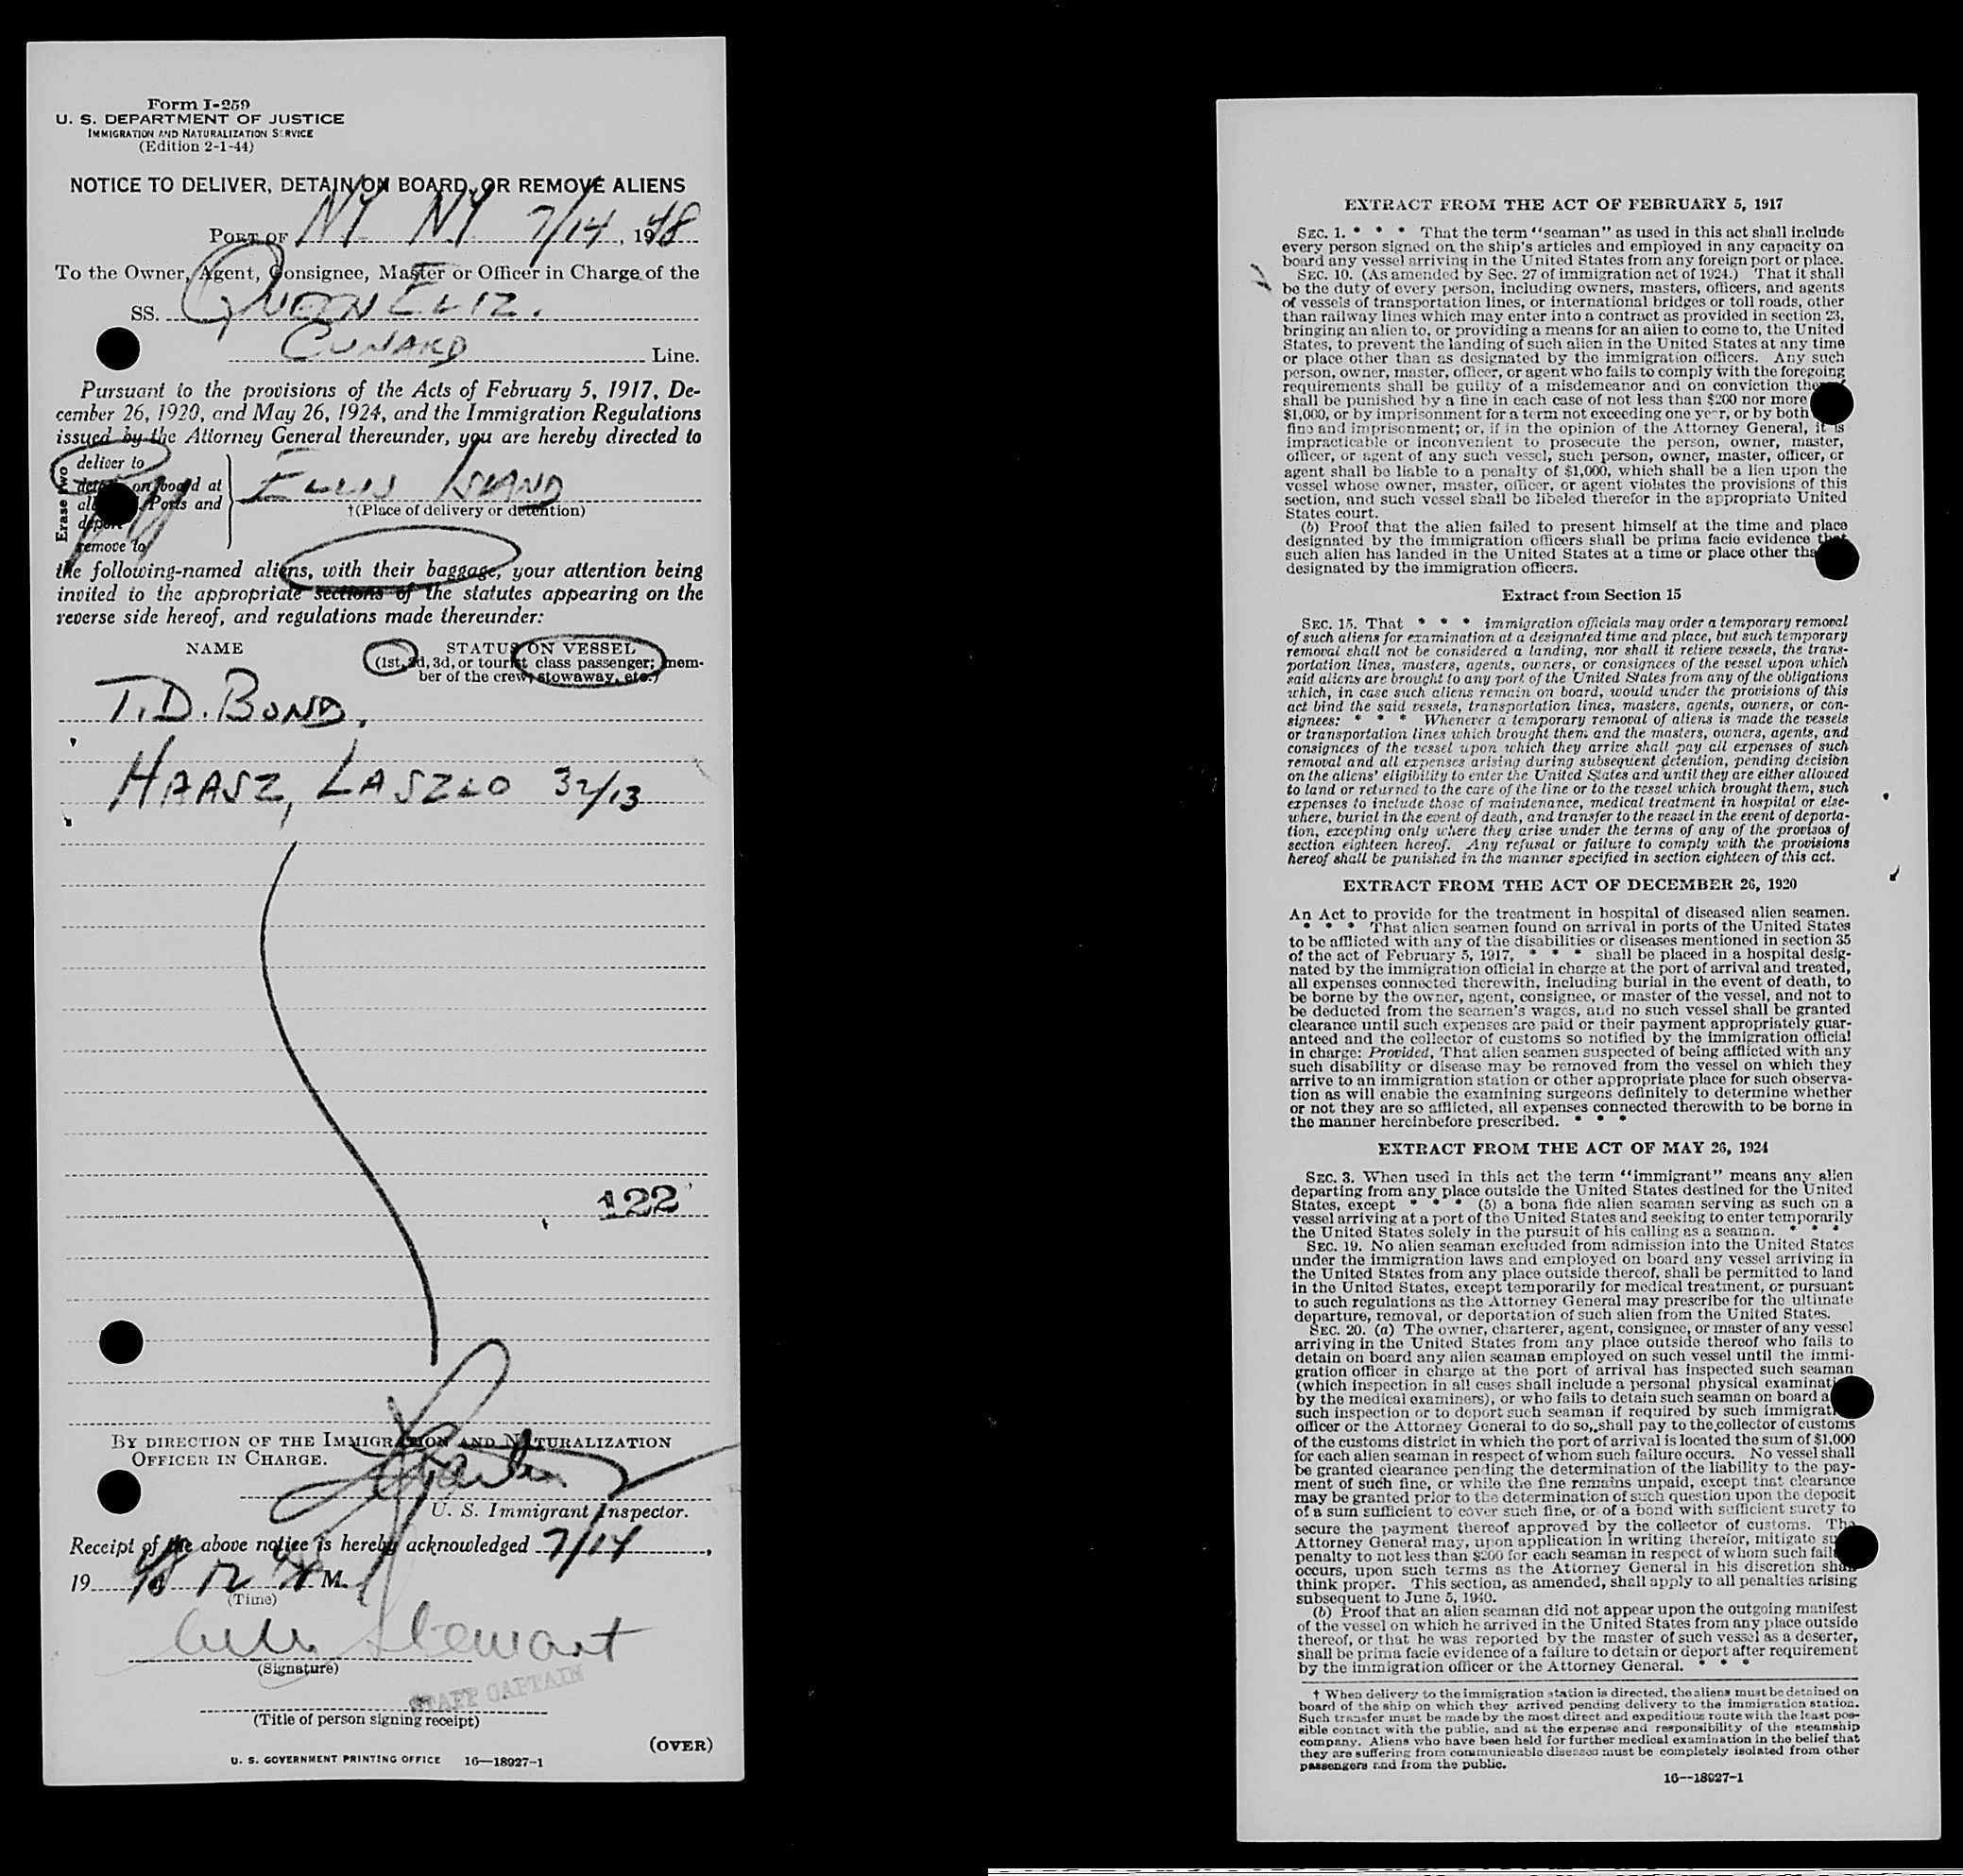 Form I-259
U. S. DEPARTMENT OF JUSTICE
IMMIGRATION AND NATURALIZATION SERVICE
(Edition 2-1-44)
NOTICE TO DELIVER, DETAIN ON BOARD, OR REMOVE ALIENS
PORT OF NY NY 7/14, 1948
To the Owner, Agent, Consignee, Master or Officer in Charge of the
SS. QUEEN ELIZ.
CUNARD Line.
Pursuant to the provisions of the Acts of February 5, 1917, De-
cember 26, 1920, and May 26, 1924, and the Immigration Regulations
issued by the Attorney General thereunder, you are hereby directed to
Erase two
deliver to
detain on board at
all Ports and
deport
remove to
ELLIS ISLAND
†(Place of delivery or detention)
the following-named aliens, with their baggage, your attention being
invited to the appropriate sections of the statutes appearing on the
reverse side hereof, and regulations made thereunder:
NAME STATUS ON VESSEL
(1st, 2d, 3d, or tourist class passenger; mem-
ber of the crew; stowaway, etc.)
T.D. BOND.
HAASZ, LASZLO 32/13
122
BY DIRECTION OF THE IMMIGRATION AND NATURALIZATION
OFFICER IN CHARGE.
U. S. Immigrant Inspector.
Receipt of the above notice is hereby acknowledged 7/14,
1948 12 M.
(Time)
Stewart
(Signature)
STAFF CAPTAIN
(Title of person signing receipt)
(OVER)
U. S. GOVERNMENT PRINTING OFFICE 16—18927-1
EXTRACT FROM THE ACT OF FEBRUARY 5, 1917
SEC. 1. * * * That the term “seaman” as used in this act shall include
every person signed on the ship's articles and employed in any capacity on
board any vessel arriving in the United States from any foreign port or place.
SEC. 10. (As amended by Sec. 27 of immigration act of 1924.) That it shall
be the duty of every person, including owners, masters, officers, and agents
of vessels of transportation lines, or international bridges or toll roads, other
than railway lines which may enter into a contract as provided in section 23,
bringing an alien to, or providing a means for an alien to come to, the United
States, to prevent the landing of such alien in the United States at any time
or place other than as designated by the immigration officers. Any such
person, owner, master, officer, or agent who fails to comply with the foregoing
requirements shall be guilty of a misdemeanor and on conviction thereof
shall be punished by a fine in each case of not less than $200 nor more
$1,000, or by imprisonment for a term not exceeding one year, or by both
fine and imprisonment; or, if in the opinion of the Attorney General, it is
impracticable or inconvenient to prosecute the person, owner, master,
officer, or agent of any such vessel, such person, owner, master, officer, or
agent shall be liable to a penalty of $1,000, which shall be a lien upon the
vessel whose owner, master, officer, or agent violates the provisions of this
section, and such vessel shall be libeled therefor in the appropriate United
States court.
(b) Proof that the alien failed to present himself at the time and place
designated by the immigration officers shall be prima facie evidence that
such alien has landed in the United States at a time or place other than
designated by the immigration officers.
Extract from Section 15
SEC. 15. That * * * immigration officials may order a temporary removal
of such aliens for examination at a designated time and place, but such temporary
removal shall not be considered a landing, nor shall it relieve vessels, the trans-
portation lines, masters, agents, owners, or consignees of the vessel upon which
said aliens are brought to any port of the United States from any of the obligations
which, in case such aliens remain on board, would under the provisions of this
act bind the said vessels, transportation lines, masters, agents, owners, or con-
signees: * * * Whenever a temporary removal of aliens is made the vessels
or transportation lines which brought them and the masters, owners, agents, and
consignees of the vessel upon which they arrive shall pay all expenses of such
removal and all expenses arising during subsequent detention, pending decision
on the aliens' eligibility to enter the United States and until they are either allowed
to land or returned to the care of the line or to the vessel which brought them, such
expenses to include those of maintenance, medical treatment in hospital or else-
where, burial in the event of death, and transfer to the vessel in the event of deporta-
tion, excepting only where they arise under the terms of any of the provisos of
section eighteen hereof. Any refusal or failure to comply with the provisions
hereof shall be punished in the manner specified in section eighteen of this act.
EXTRACT FROM THE ACT OF DECEMBER 26, 1920
An Act to provide for the treatment in hospital of diseased alien seamen.
* * * That alien seamen found on arrival in ports of the United States
to be afflicted with any of the disabilities or diseases mentioned in section 35
of the act of February 5, 1917, * * * shall be placed in a hospital desig-
nated by the immigration official in charge at the port of arrival and treated,
all expenses connected therewith, including burial in the event of death, to
be borne by the owner, agent, consignee, or master of the vessel, and not to
be deducted from the seamen's wages, and no such vessel shall be granted
clearance until such expenses are paid or their payment appropriately guar-
anteed and the collector of customs so notified by the immigration official
in charge: Provided, That alien seamen suspected of being afflicted with any
such disability or disease may be removed from the vessel on which they
arrive to an immigration station or other appropriate place for such observa-
tion as will enable the examining surgeons definitely to determine whether
or not they are so afflicted, all expenses connected therewith to be borne in
the manner hereinbefore prescribed. * * *
EXTRACT FROM THE ACT OF MAY 26, 1924
SEC. 3. When used in this act the term “immigrant” means any alien
departing from any place outside the United States destined for the United
States, except * * * (5) a bona fide alien seaman serving as such on a
vessel arriving at a port of the United States and seeking to enter temporarily
the United States solely in the pursuit of his calling as a seaman. * * *
SEC. 19. No alien seaman excluded from admission into the United States
under the immigration laws and employed on board any vessel arriving in
the United States from any place outside thereof, shall be permitted to land
in the United States, except temporarily for medical treatment, or pursuant
to such regulations as the Attorney General may prescribe for the ultimate
departure, removal, or deportation of such alien from the United States.
SEC. 20. (a) The owner, charterer, agent, consignee, or master of any vessel
arriving in the United States from any place outside thereof who fails to
detain on board any alien seaman employed on such vessel until the immi-
gration officer in charge at the port of arrival has inspected such seaman
(which inspection in all cases shall include a personal physical examination
by the medical examiners), or who fails to detain such seaman on board a
such inspection or to deport such seaman if required by such immigration
officer or the Attorney General to do so, shall pay to the collector of customs
of the customs district in which the port of arrival is located the sum of $1,000
for each alien seaman in respect of whom such failure occurs. No vessel shall
be granted clearance pending the determination of the liability to the pay-
ment of such fine, or while the fine remains unpaid, except that clearance
may be granted prior to the determination of such question upon the deposit
of a sum sufficient to cover such fine, or of a bond with sufficient surety to
secure the payment thereof approved by the collector of customs. The
Attorney General may, upon application in writing therefor, mitigate such
penalty to not less than $200 for each seaman in respect of whom such failure
occurs, upon such terms as the Attorney General in his discretion shall
think proper. This section, as amended, shall apply to all penalties arising
subsequent to June 5, 1940.
(b) Proof that an alien seaman did not appear upon the outgoing manifest
of the vessel on which he arrived in the United States from any place outside
thereof, or that he was reported by the master of such vessel as a deserter,
shall be prima facie evidence of a failure to detain or deport after requirement
by the immigration officer or the Attorney General. * * *
† When delivery to the immigration station is directed, the aliens must be detained on
board of the ship on which they arrived pending delivery to the immigration station.
Such transfer must be made by the most direct and expeditious route with the least pos-
sible contact with the public, and at the expense and responsibility of the steamship
company. Aliens who have been held for further medical examination in the belief that
they are suffering from communicable diseases must be completely isolated from other
passengers and from the public.
16—18927-1